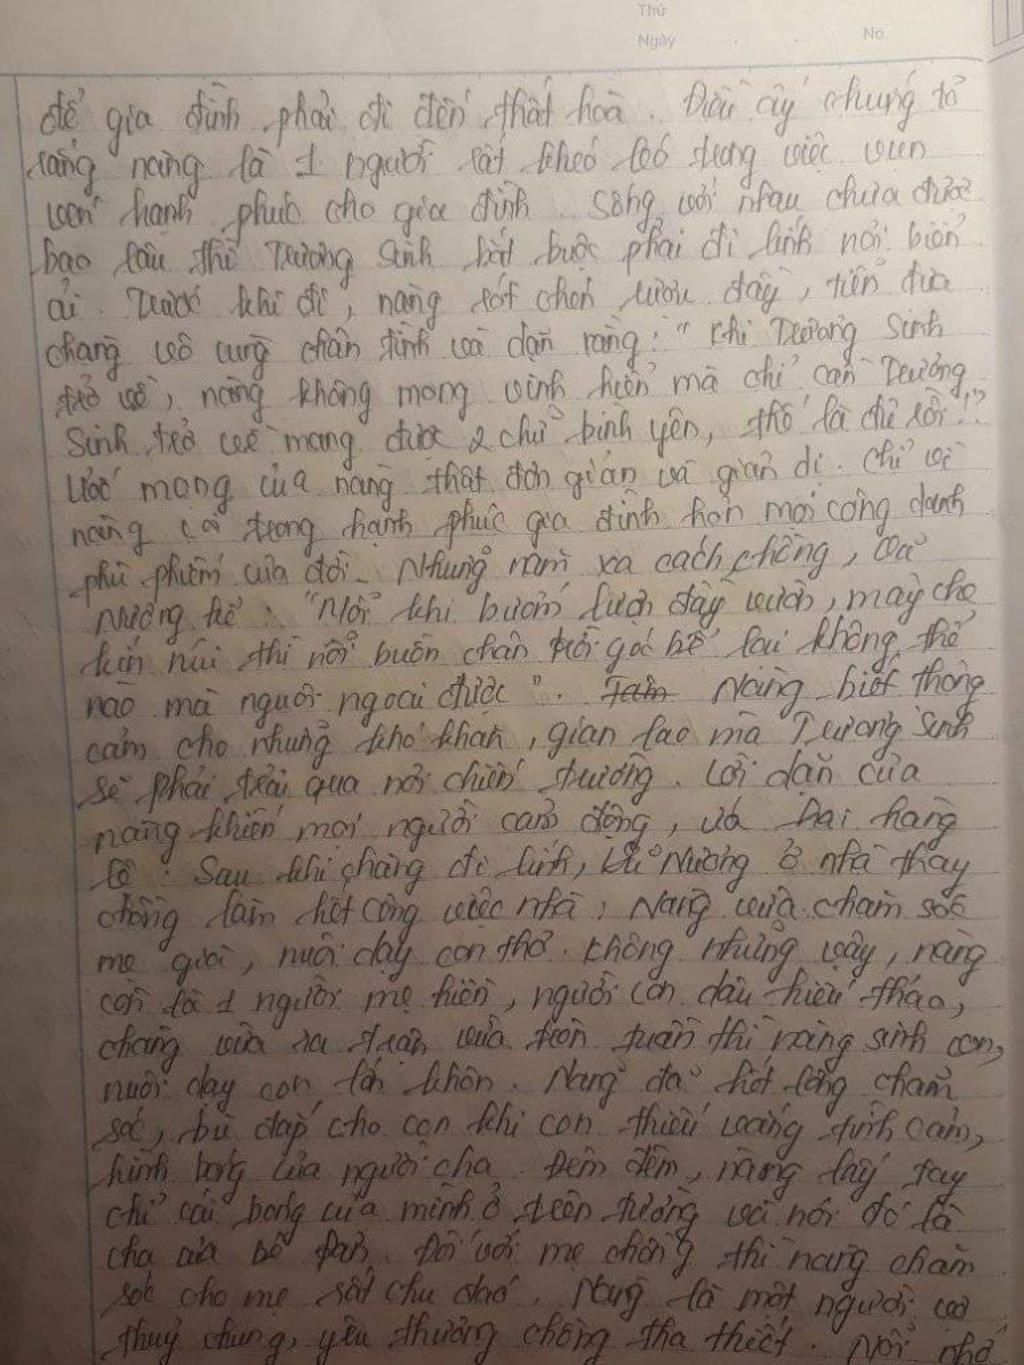 Thứ
Ngày
No.
để gia đình phải đi đến thất hoà. Điều ấy chứng tỏ
rằng nàng là 1 người rất khéo léo trong việc vun
vén hạnh phúc cho gia đình. Sống với nhau chưa được
bao lâu thì Trương Sinh bắt buộc phải đi lính nơi biên
ải. Trước khi đi, nàng rót chén rượu đầy, tiễn đưa
chàng vô cùng chân tình và dặn rằng: "Khi Trương Sinh
trở về, nàng không mong vinh hiển mà chỉ cần Trương
Sinh trở về mang được 2 chữ bình yên, thế là đủ rồi!"
Ước mong của nàng thật đơn giản và giản dị. Chỉ vì
nàng coi trọng hạnh phúc gia đình hơn mọi công danh
phù phiếm của đời. Những năm xa cách chồng, Vũ
Nương kể: "Mỗi khi bướm lượn đầy vườn, mây che
kín núi thì nỗi buồn chân trời góc bể lại không thể
nào mà nguôi ngoai được". Nàng biết thông
cảm cho những khó khăn, gian lao mà Trương Sinh
sẽ phải trải qua nơi chiến trường. Lời dặn của
nàng khiến mọi người cảm động, ứa hai hàng
lệ. Sau khi chàng đi lính, Vũ Nương ở nhà thay
chồng làm hết công việc nhà, Nàng vừa chăm sóc
mẹ già, nuôi dạy con thơ. Không những vậy, nàng
còn là 1 người mẹ hiền, người con dâu hiếu thảo,
chàng vừa ra trận vừa tròn tuần thì nàng sinh con,
nuôi dạy con lớn khôn. Nàng đã hết lòng chăm
sóc, bù đắp cho con khi con thiếu vắng tình cảm,
hình bóng của người cha. Đêm đêm, nàng lấy tay
chỉ cái bóng của mình ở trên tường và nói đó là
cha của bé Đản. Đối với mẹ chồng thì nàng chăm
sóc cho mẹ rất chu đáo. Nàng là một người vợ
thuỷ chung, yêu thương chồng tha thiết. Nỗi nhớ